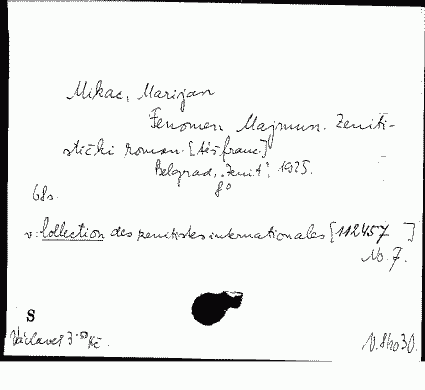 Mikac, Marijan
Fenomen Majmun. Zeniti-
stički roman. [též franc.]
Belgrad, "Zenit", 1925.
8°
68s.
v: Collection des zenitistes internationales [112457]
No. 7.
S
Václavek 7.50 Kč.